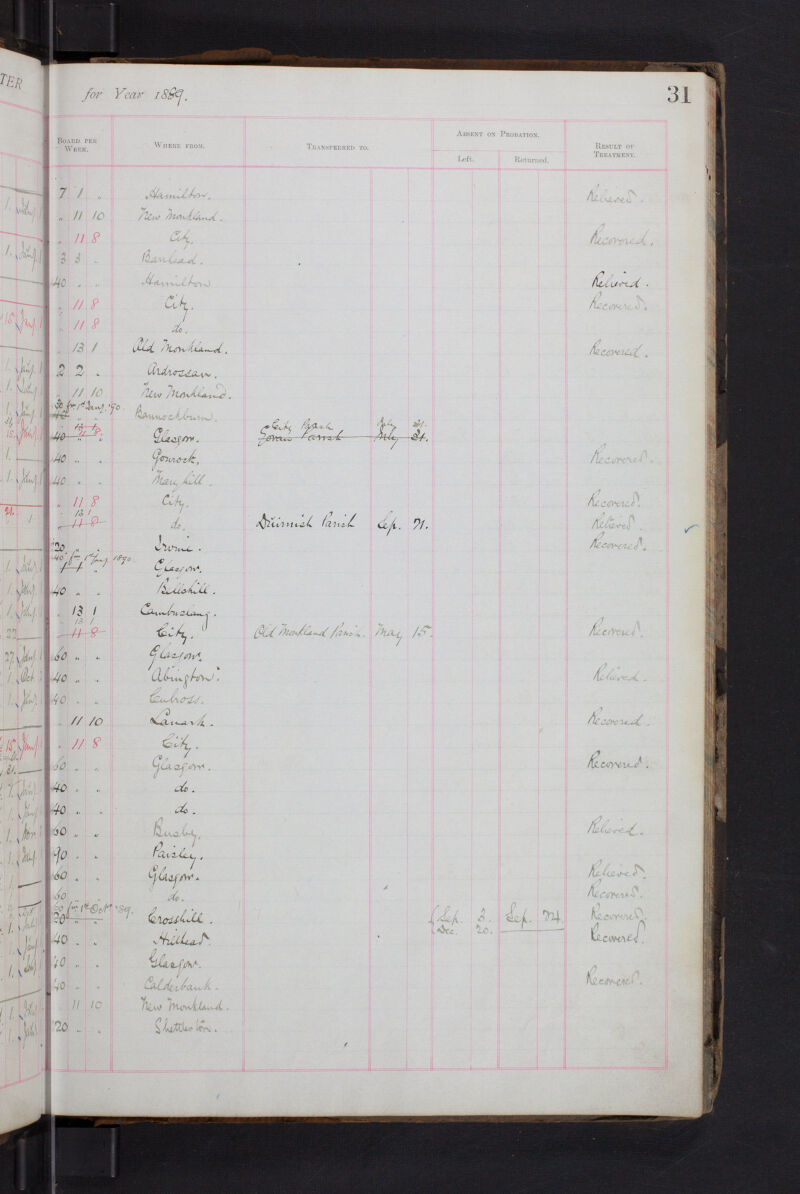 TER
for Year 1889.
31
Board per Week.
Where from.
Transferred to.
Absent on Probation.
Left.
Returned.
Result of Treatment.
7 1 " Hamilton. Relieved.
" 11 10 New Monkland.
" 11 8 City. Recovered.
3 3 " Banhead.
40 " " Hamilton Relieved.
" 11 8 City. Recovered.
" 11 8 do.
" 13 1 Old Monkland. Recovered.
2 2 " Ardrossan.
" 11 10 New Monkland.
30 fm 1st Jany '90. Bannockburn.
City Parish July 21.
40 " " Glasgow. Govan Parish July 21.
40 " " Gourock. Recovered.
40 " " Mary hill.
" 11 8 City. Recovered.
13 1
" 11 8 do. Duirnish Parish Sep. 21. Relieved.
20 " " Irvine. Recovered.
40 fm 1st Jany 1890.
1 1 " Glasgow.
40 " " Bellshill.
" 13 1 Cambuslang.
13 1
" 11 8 City. Old Monkland Parish. May 15. Recovered.
60 " " Glasgow.
40 " " Abington. Relieved.
40 " " Culross.
" 11 10 Lanark. Recovered.
" 11 8 City.
60 " " Glasgow. Recovered.
40 " " do.
40 " " do.
60 " " Busby. Relieved.
90 " " Paisley.
60 " " Glasgow. Relieved.
60 do. Recovered.
60 fm 1st Oct '89.
20 " " Crosshill. Sep. 3. Sep. 24. Recovered.
Dec. 20.
40 " " Hillhead. Recovered.
40 " " Glasgow.
40 " " Calderbank. Recovered.
" 11 10 New Monkland.
120 " " Shettleston.